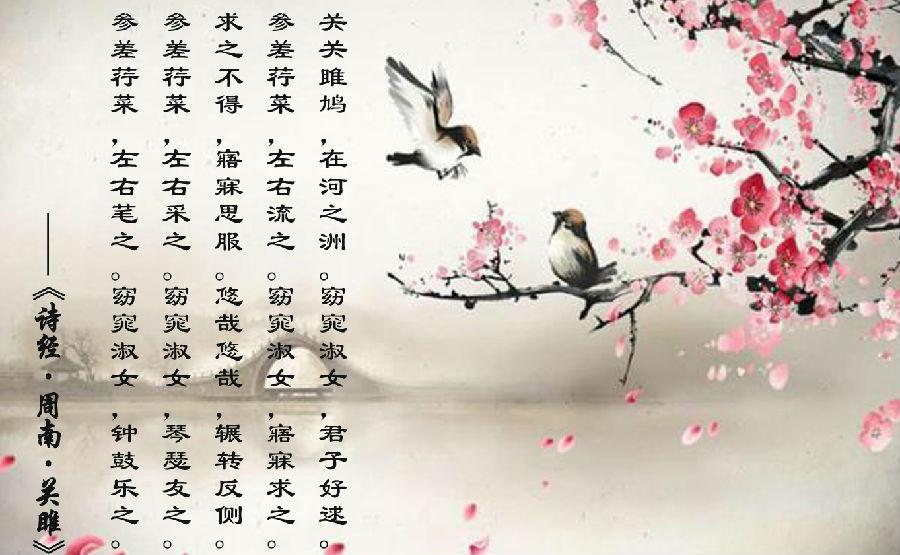 关关雎鸠,在河之洲。窈窕淑女,君子好逑。
参差荇菜,左右流之。窈窕淑女,寤寐求之。
求之不得,寤寐思服。悠哉悠哉,辗转反侧。
参差荇菜,左右采之。窈窕淑女,琴瑟友之。
参差荇菜,左右笔之。窈窕淑女,钟鼓乐之。
——《诗经·周南·关雎》